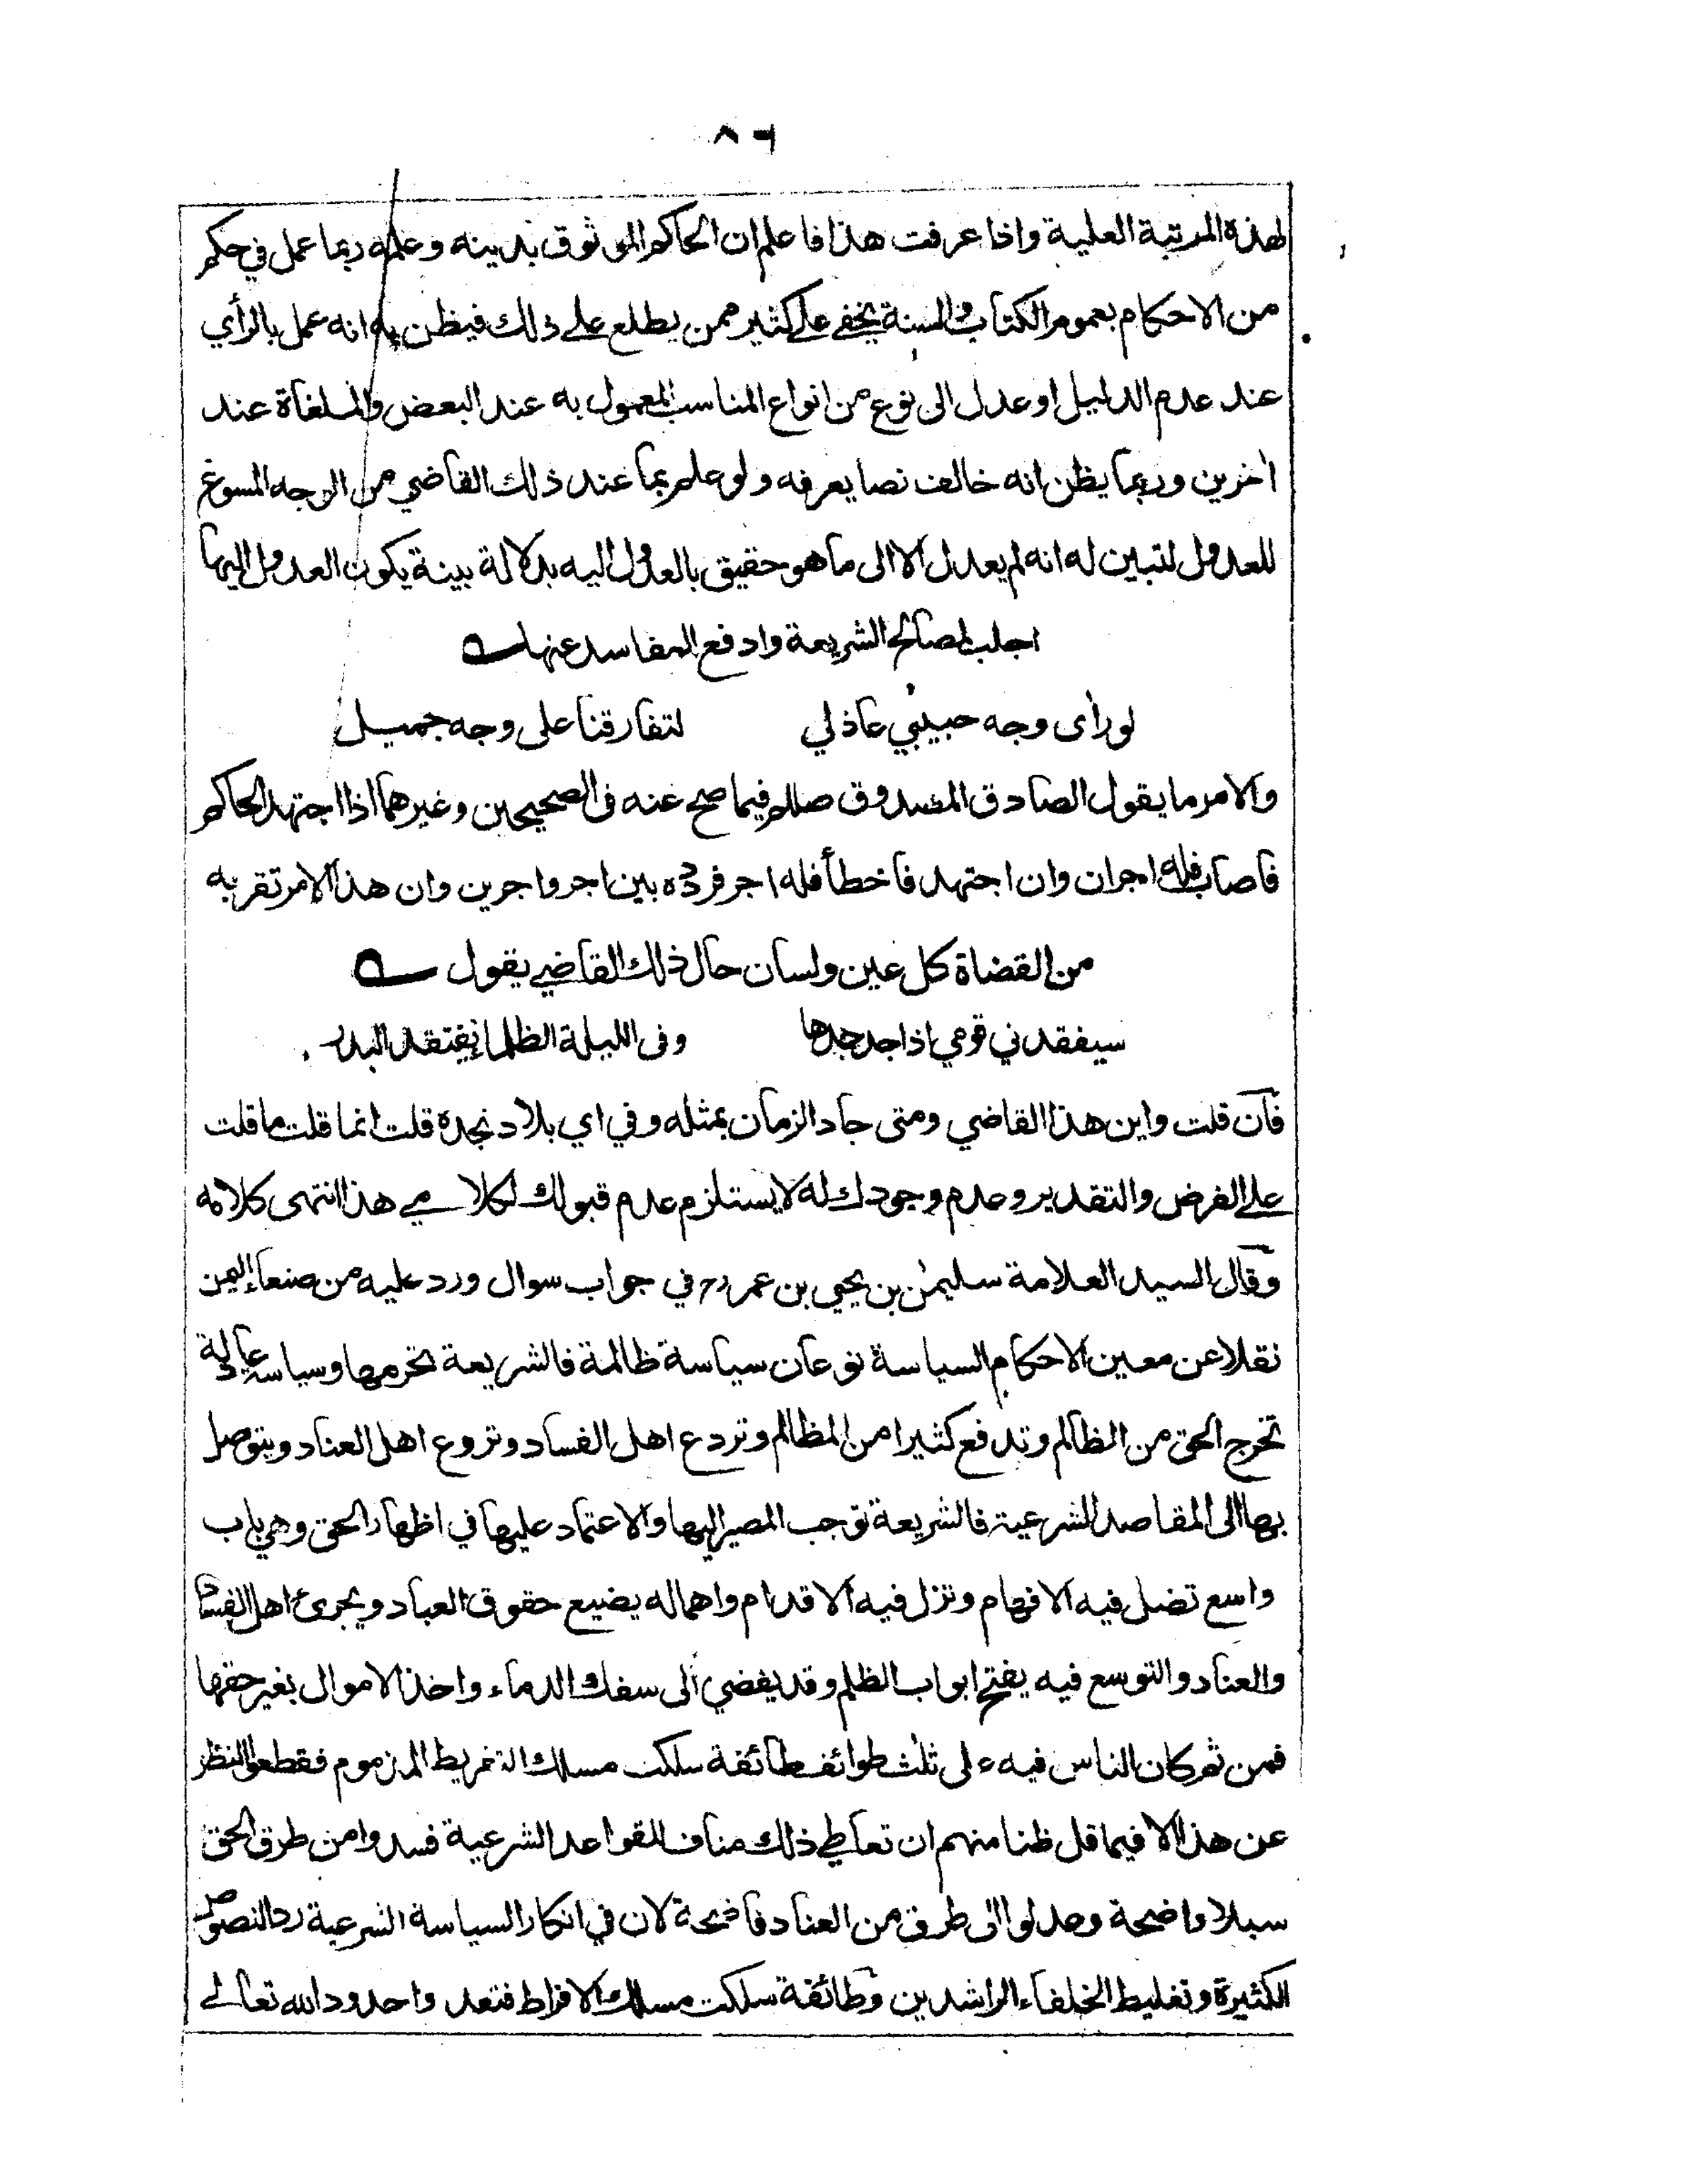 ٨٦
لهذه المرتبة العلية واذا عرفت هذا فاعلم ان الحاكم الموثوق بدينه وعلمه ربما عمل في حكم
من الاحكام بعموم الكتاب والسنة يخفى على كثير ممن يطلع على ذلك فيظن به انه عمل بالرأي
عند عدم الدليل او عدل الى نوع من انواع المناسب المعمول به عند البعض والملغاة عند
اخرين وربما يظن انه خالف نصا يعرفه ولو علم بما عند ذلك القاضي من الوجه المسوغ
للعدول لتبين له انه لم يعدل الا الى ما هو حقيق بالعدول اليه بدلالة بينة يكون العدول اليها
اجلب لمصالح الشريعة وادفع المفاسد عنها
لو رأى وجه حبيبي عاذلي لتفارقنا على وجه جميل
والامر ما يقول الصادق المصدوق صللم فيما صح عنه فى الصحيحين وغيرهما اذا اجتهد الحاكم
فاصاب فله اجران وان اجتهد فاخطأ فله اجر فرده بين اجر واجرين وان هذا الامر تقر به
من القضاة كل عين ولسان حال ذلك القاضي يقول
سيفقدني قومي اذا جد جدها وفى الليلة الظلما يفتقد البدر
فان قلت واين هذا القاضي ومتى جاد الزمان بمثله وفي اي بلاد نجده قلت انما قلت ما قلت
على الفرض والتقدير وعدم وجودك له لا يستلزم عدم قبولك لكلامي هذا انتهى كلامه
وقال السيد العلامة سليمٰن بن يحيى بن عمر رح في جواب سوال ورد عليه من صنعاء اليمن
نقلا عن معين الاحكام السياسة نوعان سياسة ظالمة فالشريعة تحرمها وسياسة عادلة
تخرج الحق من الظالم وتدفع كثيرا من المظالم وتردع اهل الفساد وتروع اهل العناد ويتوصل
بها الى المقاصد الشرعية فالشريعة توجب المصير اليها والاعتماد عليها في اظهار الحق وهي باب
واسع تضل فيه الافهام وتزل فيه الاقدام واهماله يضيع حقوق العباد ويجرئ اهل الفساد
والعناد والتوسع فيه يفتح ابواب الظلم وقد يفضي الى سفك الدماء واخذ الاموال بغير حقها
فمن ثم كان الناس فيه على ثلث طوائف طائفة سلكت مسلك التفريط المذموم فقطعوا النظر
عن هذا الا فيما قل ظنا منهم ان تعاطي ذلك مناف للقواعد الشرعية فسدوا من طرق الحق
سبلا واضحة وعدلوا الى طرق من العناد فاضحة لان في انكار السياسة الشرعية رد النصوص
الكثيرة وتغليط الخلفاء الراشدين وطائفة سلكت مسلك الافراط فتعدوا حدود الله تعالى